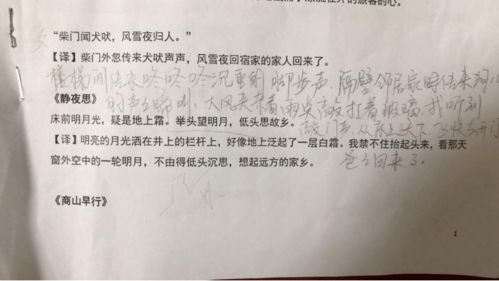 “柴门闻犬吠，风雪夜归人。”
【译】柴门外忽传来犬吠声声，风雪夜回宿家的家人回来了。
楼梯间传来咚咚咚沉重的脚步声，隔壁邻居家时传来狗
《静夜思》
的声声，大风夹着雨点敲打着玻璃，我听到
床前明月光，疑是地上霜。举头望明月，低头思故乡。
敲门声，从床上下，飞快去开门
【译】明亮的月光洒在井上的栏杆上，好像地上泛起了一层白霜。我禁不住抬起头来，看那天
窗外空中的一轮明月，不由得低头沉思，想起远方的家乡。
爸爸回来了。
《商山早行》
1